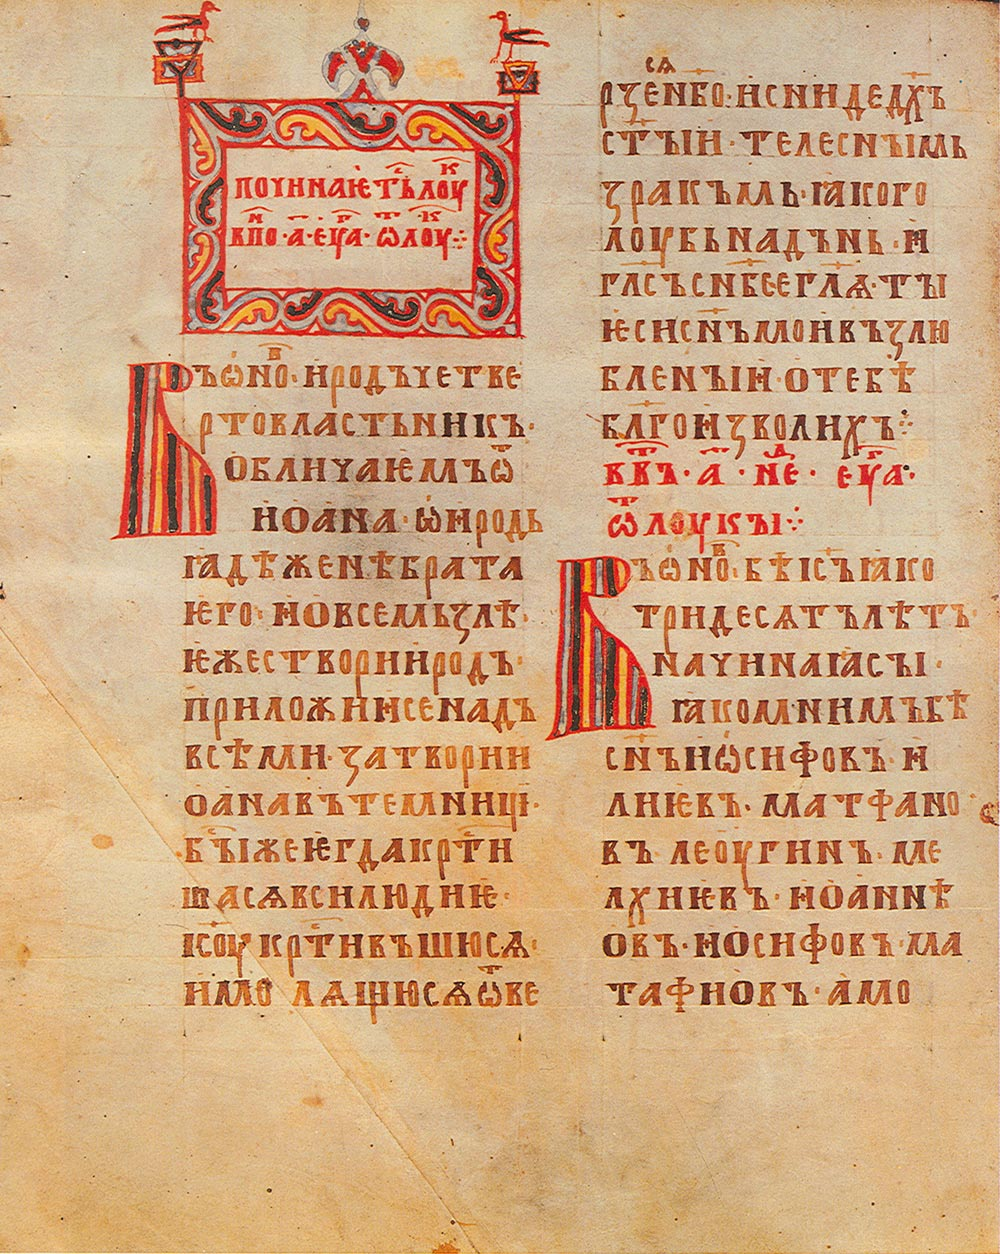 ПОЧИНАѤТЬ ЛОУК
ВПОН · А · ЕУГА · Ѿ ЛОУК ⁘
ВЪ ѠНО · ИРОДЪ ЧЕТВЕ
РТОВЛАСТЬНИКЪ ·
ОБЛИЧАѤМЪ Ѿ
ИОАНА · Ѡ ИРОДЬ
ꙖДѢ ЖЕНѢ БРАТА
ѤГО · И О ВСЕМЬ ЗЛѢ ·
ѤЖЕ СТВОРИ ИРОДЪ ·
ПРИЛОЖИ И СЕ НАДЪ
ВСѢМИ · ЗАТВОРИ И
ОАНА ВЪ ТЕМНИЦИ ·
БЪІ ЖЕ ѤГДА КРТИ
ША СѦ ВСИ ЛЮДИѤ ·
ІСОУ КРТИВЪШЮ СѦ ·
И МОЛѦЩЮ СѦ ѾВЕ
РЗЕ СѦ НБО · И СНИДЕ ДХЪ
СТЪІИ · ТЕЛЕСНЪІМЬ
ЗРАКЪМЬ · ꙖКО ГО
ЛОУБЬ НА ДЪНЬ · И
ГЛС Ъ С НБСЕ ГЛѦ · ТЫ
ѤСИ СНЪ МОИ ВЪЗЛЮ
БЛЕНЪІИ · О ТЕБѢ
БЛГОИЗВОЛИХЪ ⁘
В ВТЪ · А · НЕД · ЕУГА ·
Ѿ ЛОУКЪІ ⁘
ВЪ ѠНО · БѢ ІСЪ ꙖКО
ТРИДЕСѦТЪ ЛѢТЪ ·
НАЧИНАꙖ СЫ ·
ꙖКО МНИМЪ БѢ
СНЪ ИѠСИФОВЪ · И
ЛИѤВЪ · МАТФАНО
ВЪ · ЛЕОУГИНЪ · МЕ
ЛХИѤВЪ · ИОАННѢ
ОВЪ · ИОСИФОВЪ · МА
ТАФИОВЪ · АМО